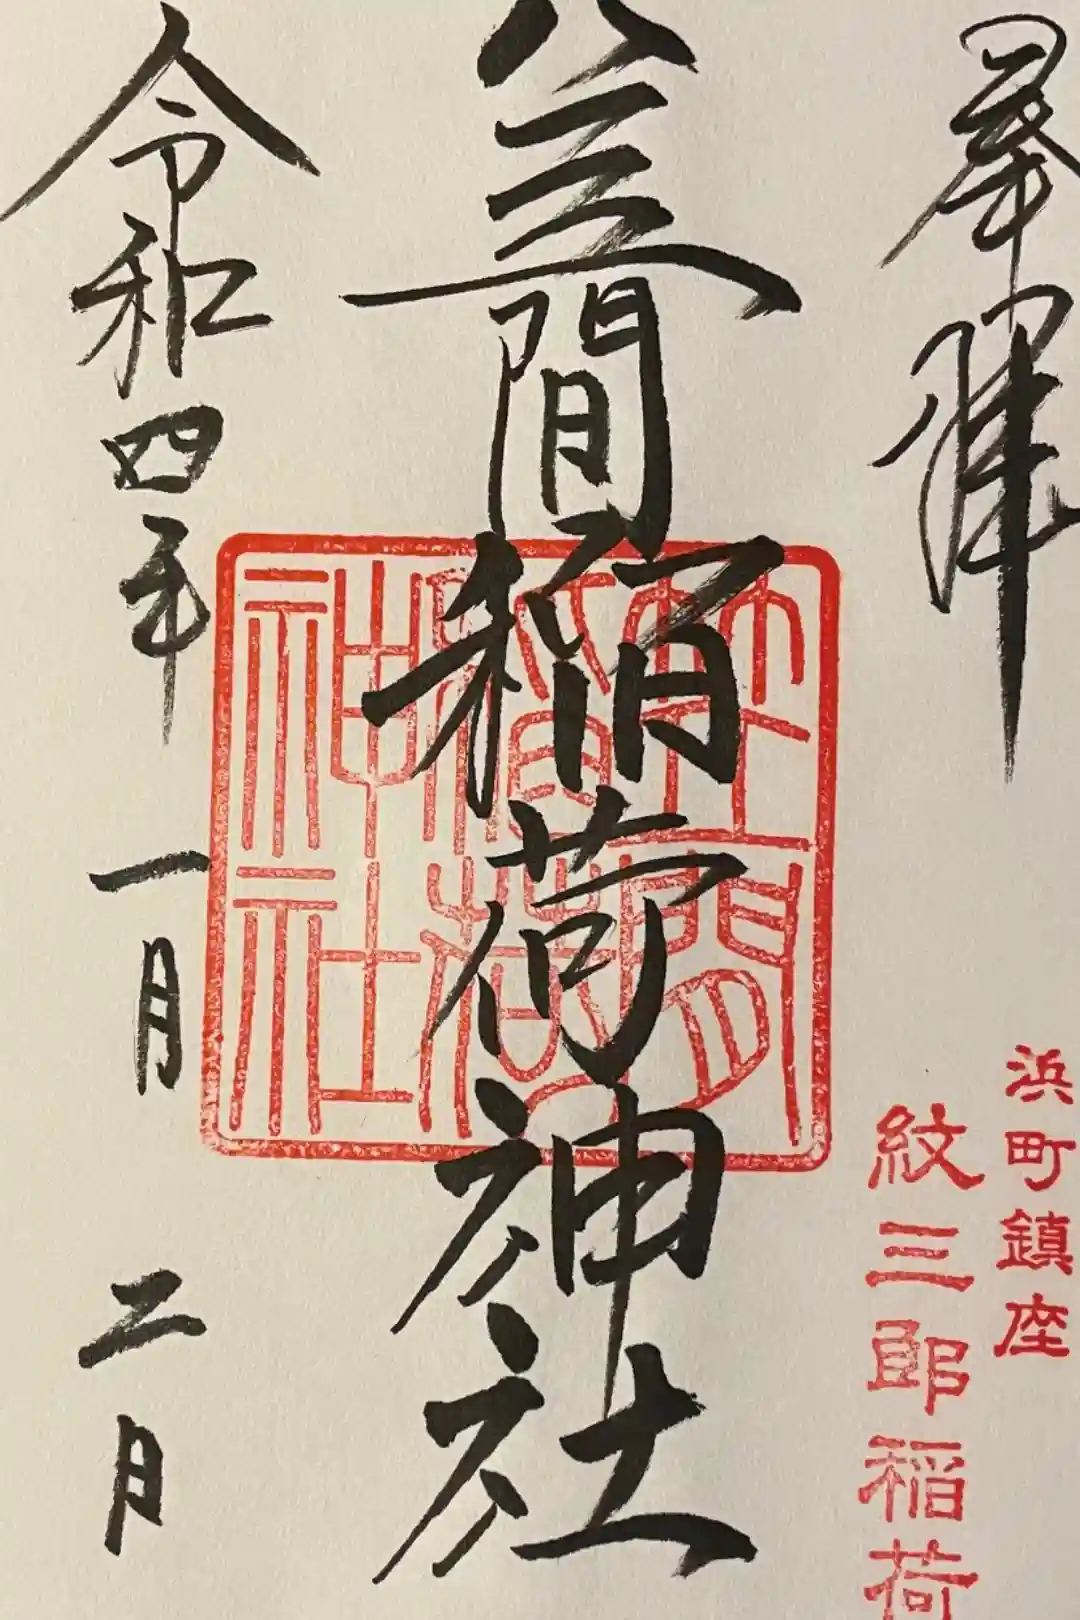 奉拝
浜町鎮座
紋三郎稲荷
笠間稲荷神社
笠間稲荷神社
令和四年一月二日